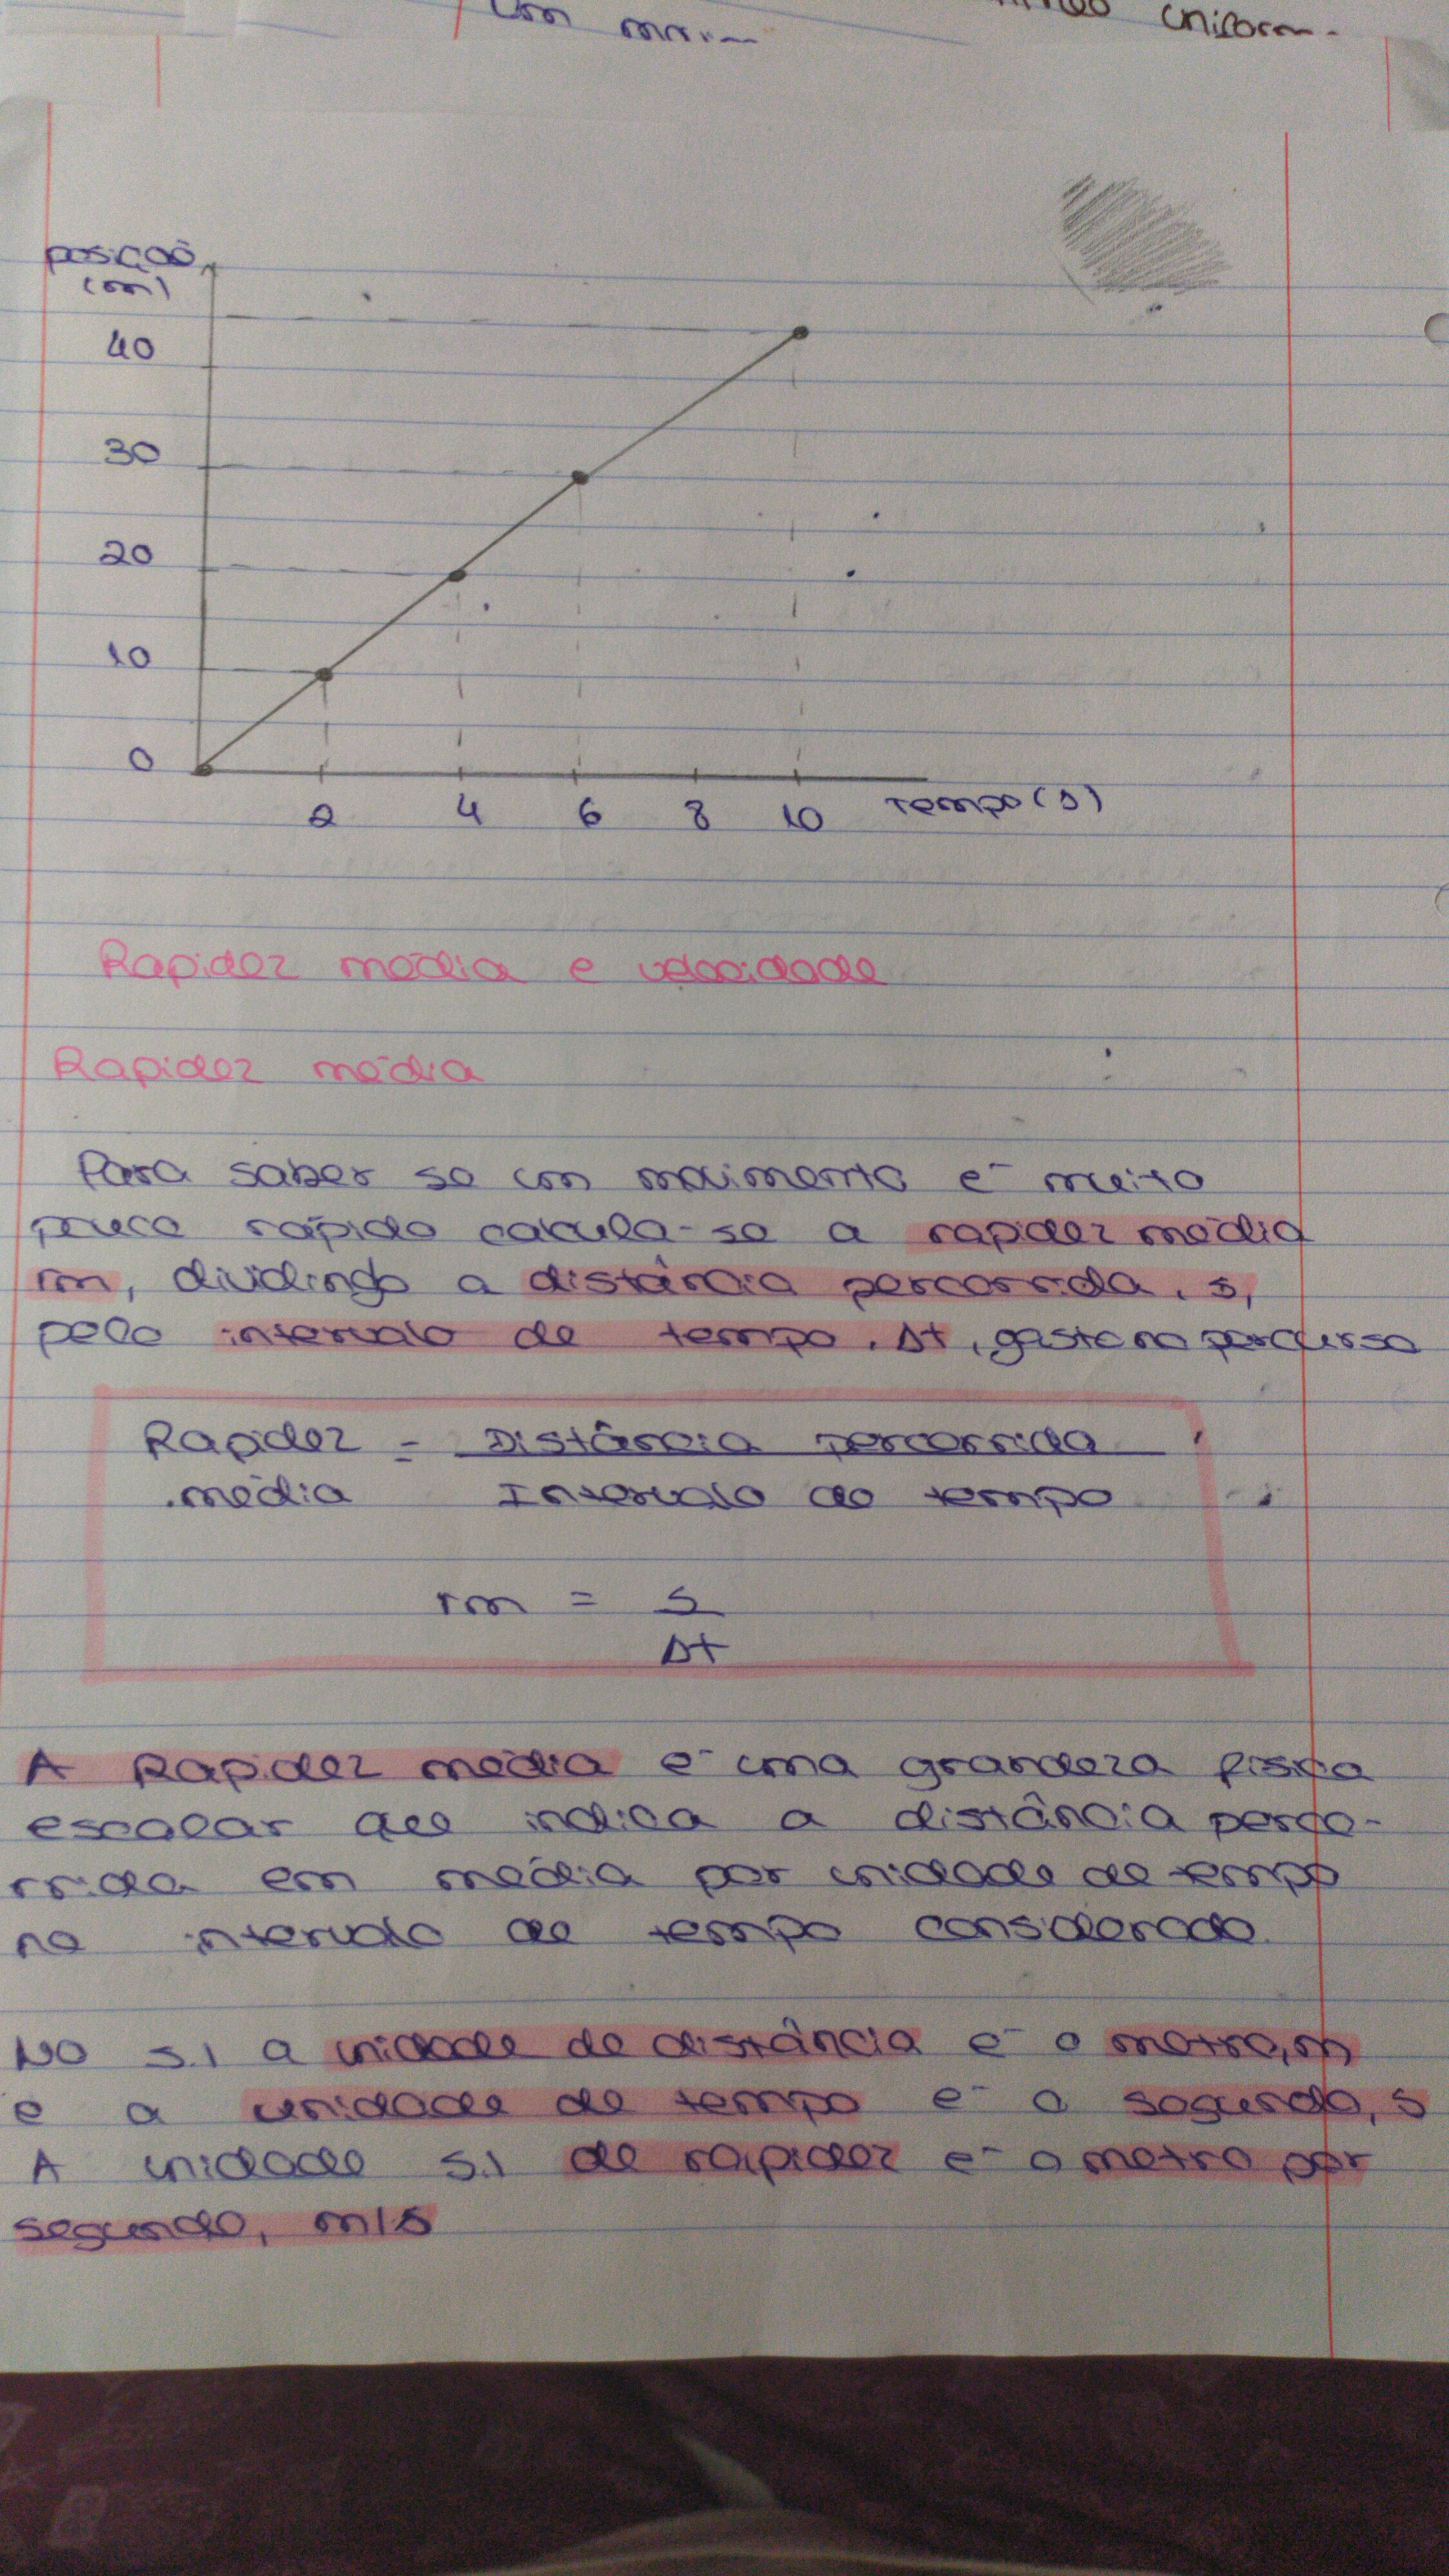 uniform
posição
(m)
40
30
20
10
0
2 4 6 8 10 Tempo (s)
Rapidez média e velocidade
Rapidez média
Para saber se um movimento é muito
pouco rápido calcula-se a rapidez média
rm, dividindo a distância percorrida, s,
pelo intervalo de tempo, Δt, gasto no percurso
Rapidez = Distância percorrida
média Intervalo de tempo
rm = s
Δt
A Rapidez média é uma grandeza física
escalar que indica a distância perco-
rrida em média por unidade de tempo
no intervalo de tempo considerado.
No S.I a unidade de distância é o metro, m
e a unidade de tempo é o segundo, s
A unidade S.I de rapidez é o metro por
segundo, m/s